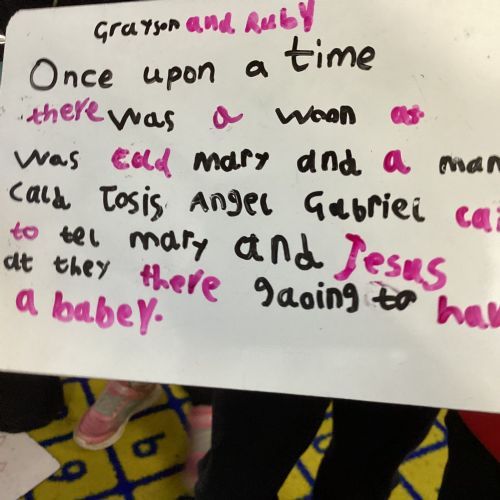 Grayson and Ruby
Once upon a time
there was a woon as
was cald mary and a man
cald Tosis Angel Gabriel
to tel mary and Jesus
at they there gaoing to hav
a babey.